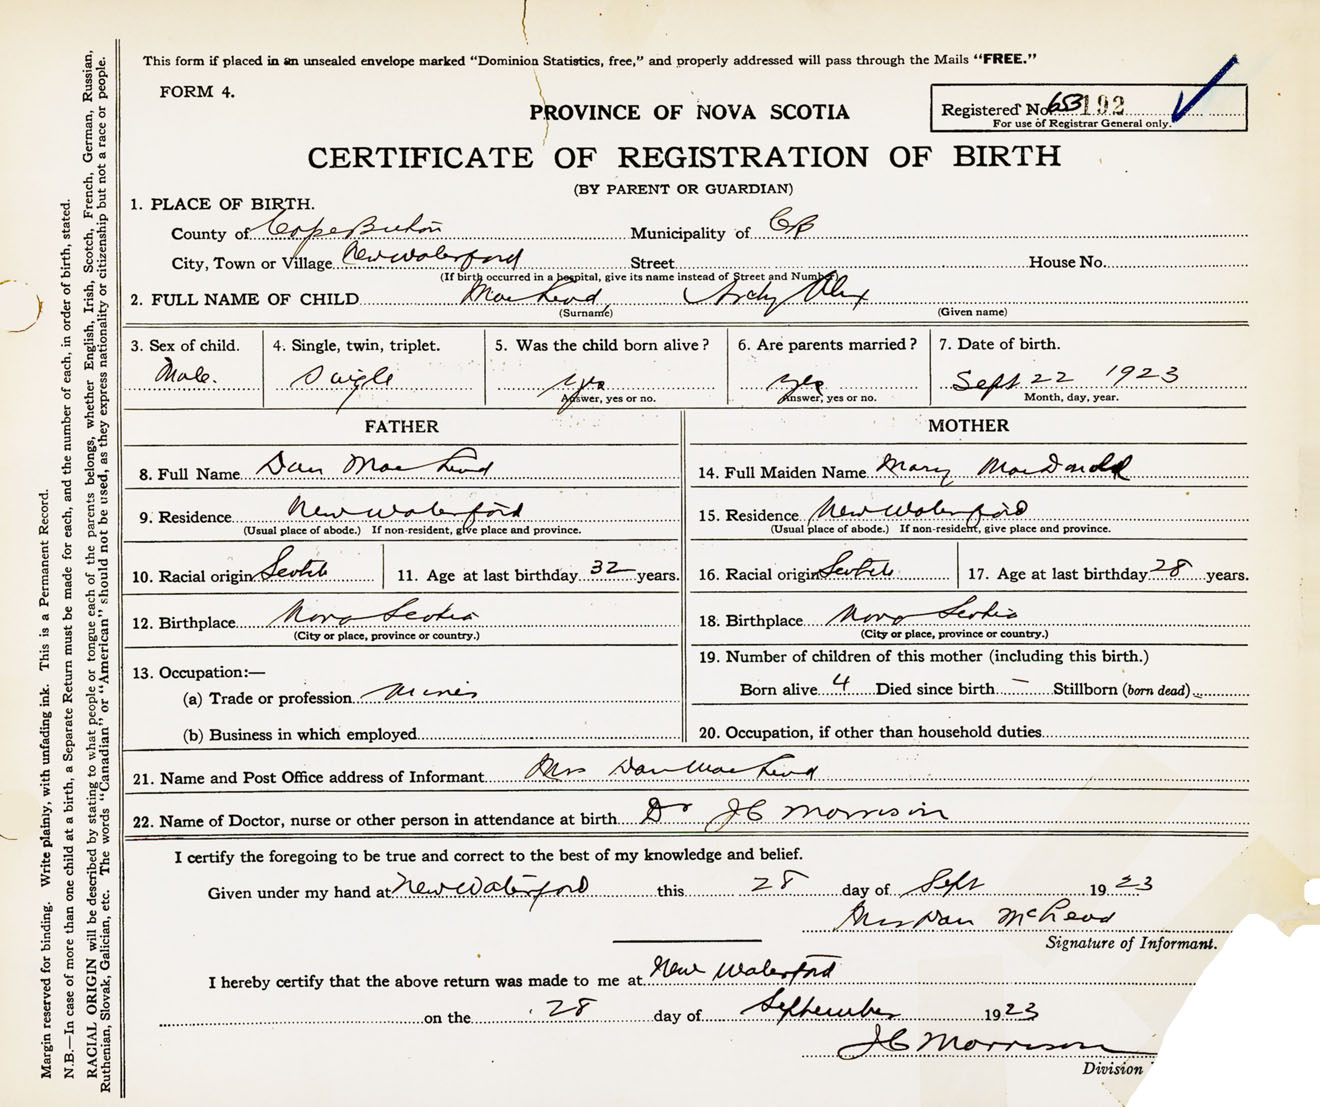 This form if placed in an unsealed envelope marked "Dominion Statistics, free," and properly addressed will pass through the Mails "FREE."
FORM 4.
Registered No. 653192
For use of Registrar General only.
PROVINCE OF NOVA SCOTIA
CERTIFICATE OF REGISTRATION OF BIRTH
(BY PARENT OR GUARDIAN)
1. PLACE OF BIRTH.
County of Cape Breton Municipality of CB
City, Town or Village New Waterford Street House No.
(If birth occurred in a hospital, give its name instead of Street and Number)
2. FULL NAME OF CHILD MacLeod, Archy Alex
(Surname) (Given name)
3. Sex of child. 4. Single, twin, triplet. 5. Was the child born alive? 6. Are parents married? 7. Date of birth.
Male. Single yes yes Sept 22 1923
Answer, yes or no. Answer, yes or no. Month, day, year.
FATHER MOTHER
8. Full Name Dan MacLeod 14. Full Maiden Name Mary MacDonald
9. Residence New Waterford 15. Residence New Waterford
(Usual place of abode.) If non-resident, give place and province. (Usual place of abode.) If non-resident, give place and province.
10. Racial origin Scotch 11. Age at last birthday 32 years. 16. Racial origin Scotch 17. Age at last birthday 28 years.
12. Birthplace Nova Scotia 18. Birthplace Nova Scotia
(City or place, province or country.) (City or place, province or country.)
13. Occupation:— 19. Number of children of this mother (including this birth.)
(a) Trade or profession Miner Born alive 4 Died since birth – Stillborn (born dead)
(b) Business in which employed 20. Occupation, if other than household duties
21. Name and Post Office address of Informant Mrs Dan MacLeod
22. Name of Doctor, nurse or other person in attendance at birth Dr JC Morrison
I certify the foregoing to be true and correct to the best of my knowledge and belief.
Given under my hand at New Waterford this 28 day of Sept 1923
Mrs Dan McLeod
Signature of Informant.
I hereby certify that the above return was made to me at New Waterford
on the 28 day of September 1923
JC Morrison
Division
Margin reserved for binding. Write plainly, with unfading ink. This is a Permanent Record.
N.B.—In case of more than one child at a birth, a Separate Return must be made for each, and the number of each, in order of birth, stated.
RACIAL ORIGIN will be described by stating to what people or tongue each of the parents belongs, whether English, Irish, Scotch, French, German, Russian,
Ruthenian, Slovak, Galician, etc. The words "Canadian" or "American" should not be used, as they express nationality or citizenship but not a race or people.